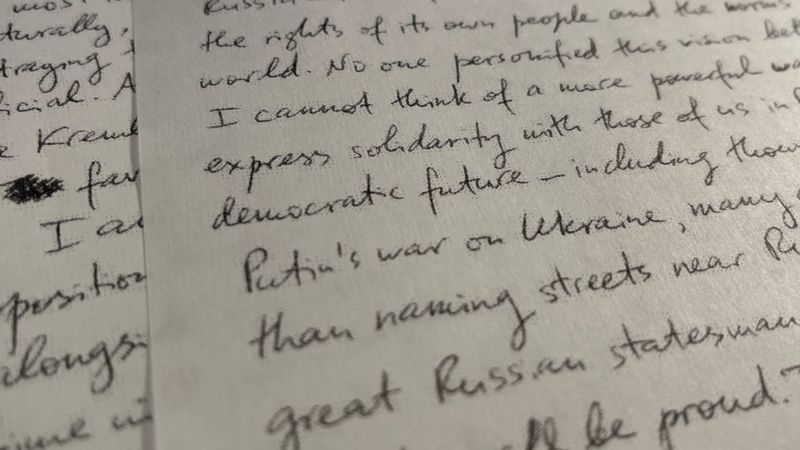 most
turally,
traying
icial. A
e Kreml
fav
I a
position
alongsi
the rights of its own people and the norms
world. No one personified this vision bet
I cannot think of a more powerful wa
express solidarity with those of us in
democratic future – including thous
Putin's war on Ukraine, many
than naming streets near Ru
great Russian statesman
be proud.